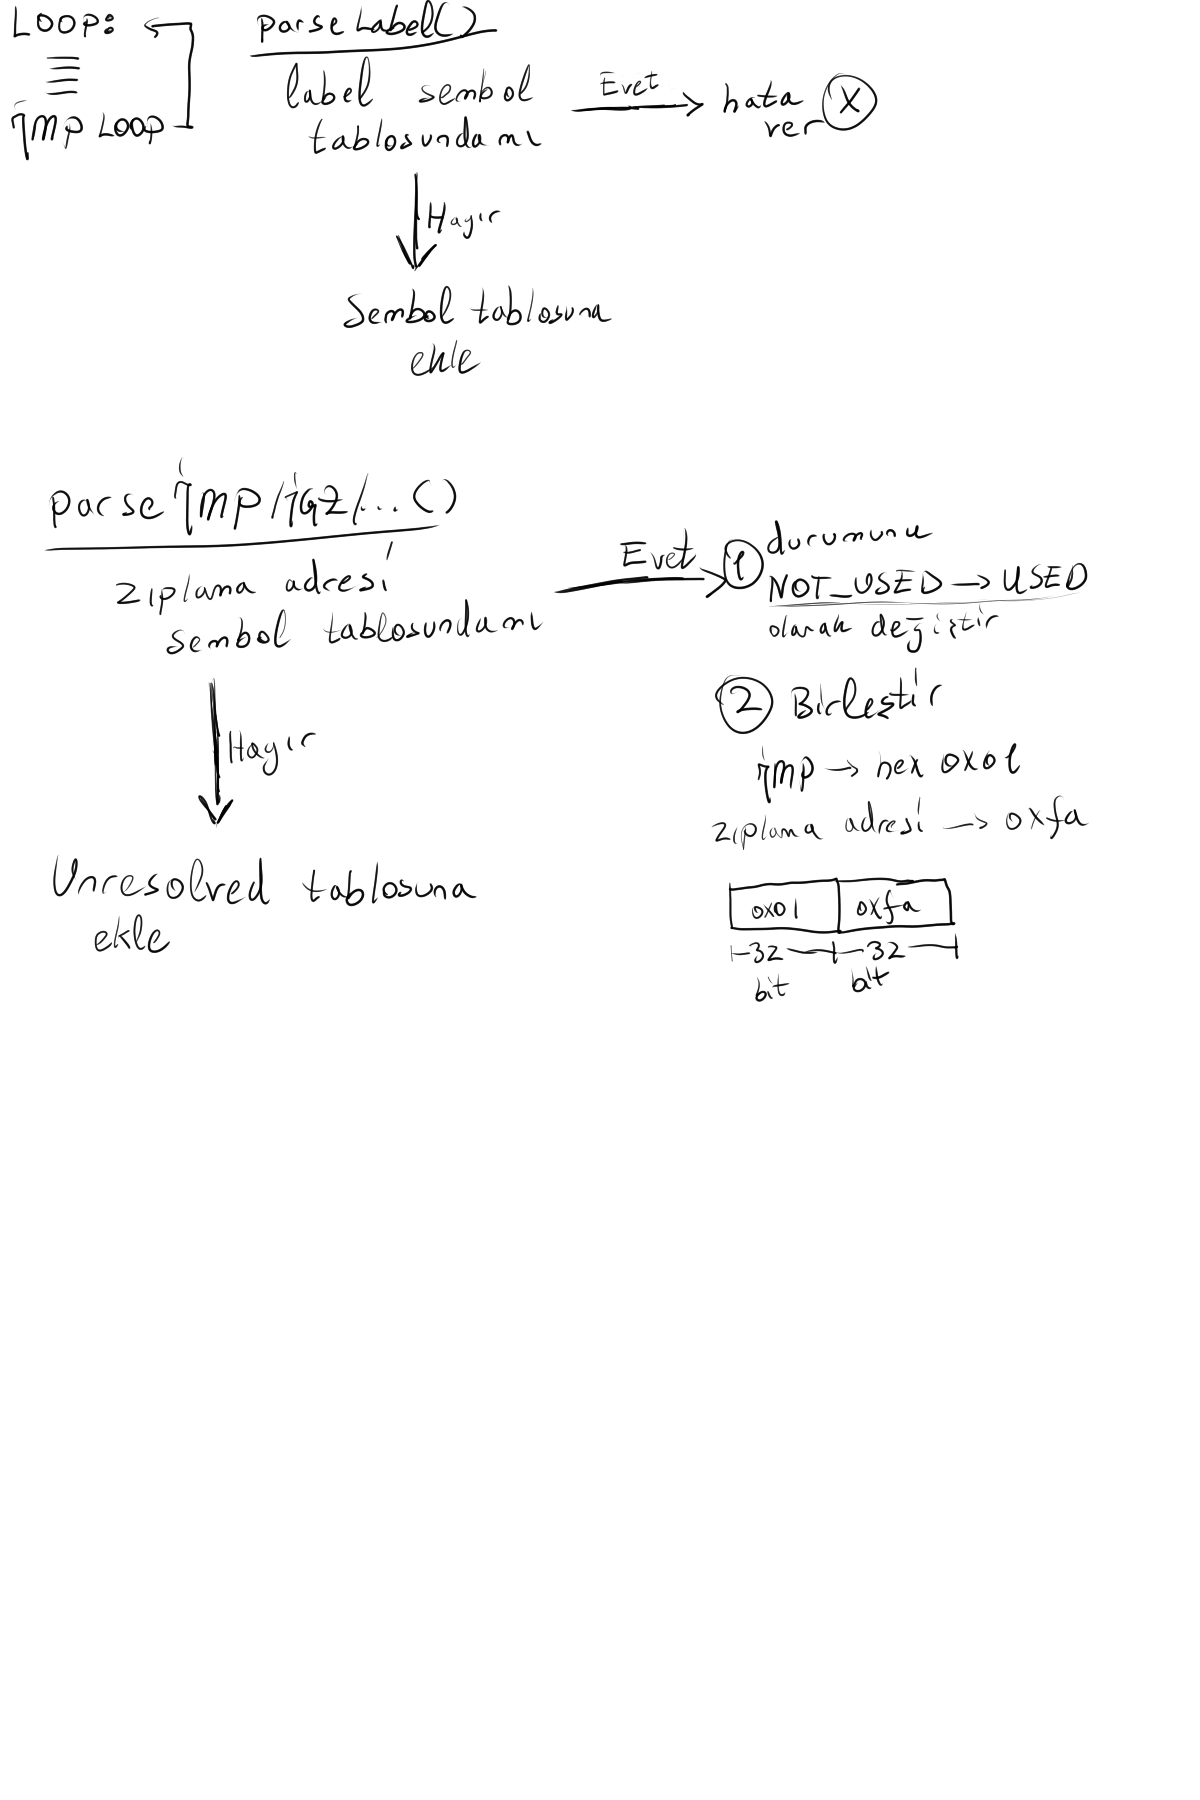 LOOP:
jmp LOOP
parseLabel()
label sembol
tablosundamı
Evet
hata
ver X
Hayır
Sembol tablosuna
ekle
parse jmp/jGZ/...()
zıplama adresi
sembol tablosundamı
Evet
1 durumunu
NOT_USED → USED
olarak değiştir
2 Birleştir
jmp → hex 0x01
zıplama adresi → 0xfa
0x01 0xfa
32 32
bit bit
Hayır
Unresolved tablosuna
ekle